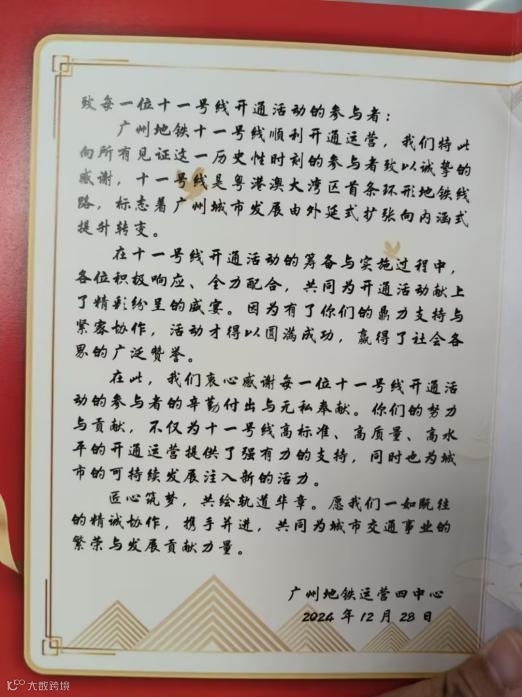 致每一位十一号线开通活动的参与者：
广州地铁十一号线顺利开通运营，我们特此
向所有见证这一历史性时刻的参与者致以诚挚的
感谢，十一号线是粤港澳大湾区首条环形地铁线
路，标志着广州城市发展由外延式扩张向内涵式
提升转变。
在十一号线开通活动的筹备与实施过程中，
各位积极响应、全力配合，共同为开通活动献上
了精彩纷呈的盛宴。因为有了你们的鼎力支持与
紧密协作，活动才得以圆满成功，赢得了社会各
界的广泛赞誉。
在此，我们衷心感谢每一位十一号线开通活
动的参与者的辛勤付出与无私奉献。你们的努力
与贡献，不仅为十一号线高标准、高质量、高水
平的开通运营提供了强有力的支持，同时也为城
市的可持续发展注入新的活力。
匠心筑梦，共绘轨道华章。愿我们一如既往
的精诚协作，携手并进，共同为城市交通事业的
繁荣与发展贡献力量。
广州地铁运营四中心
2024年12月28日
大数跨境